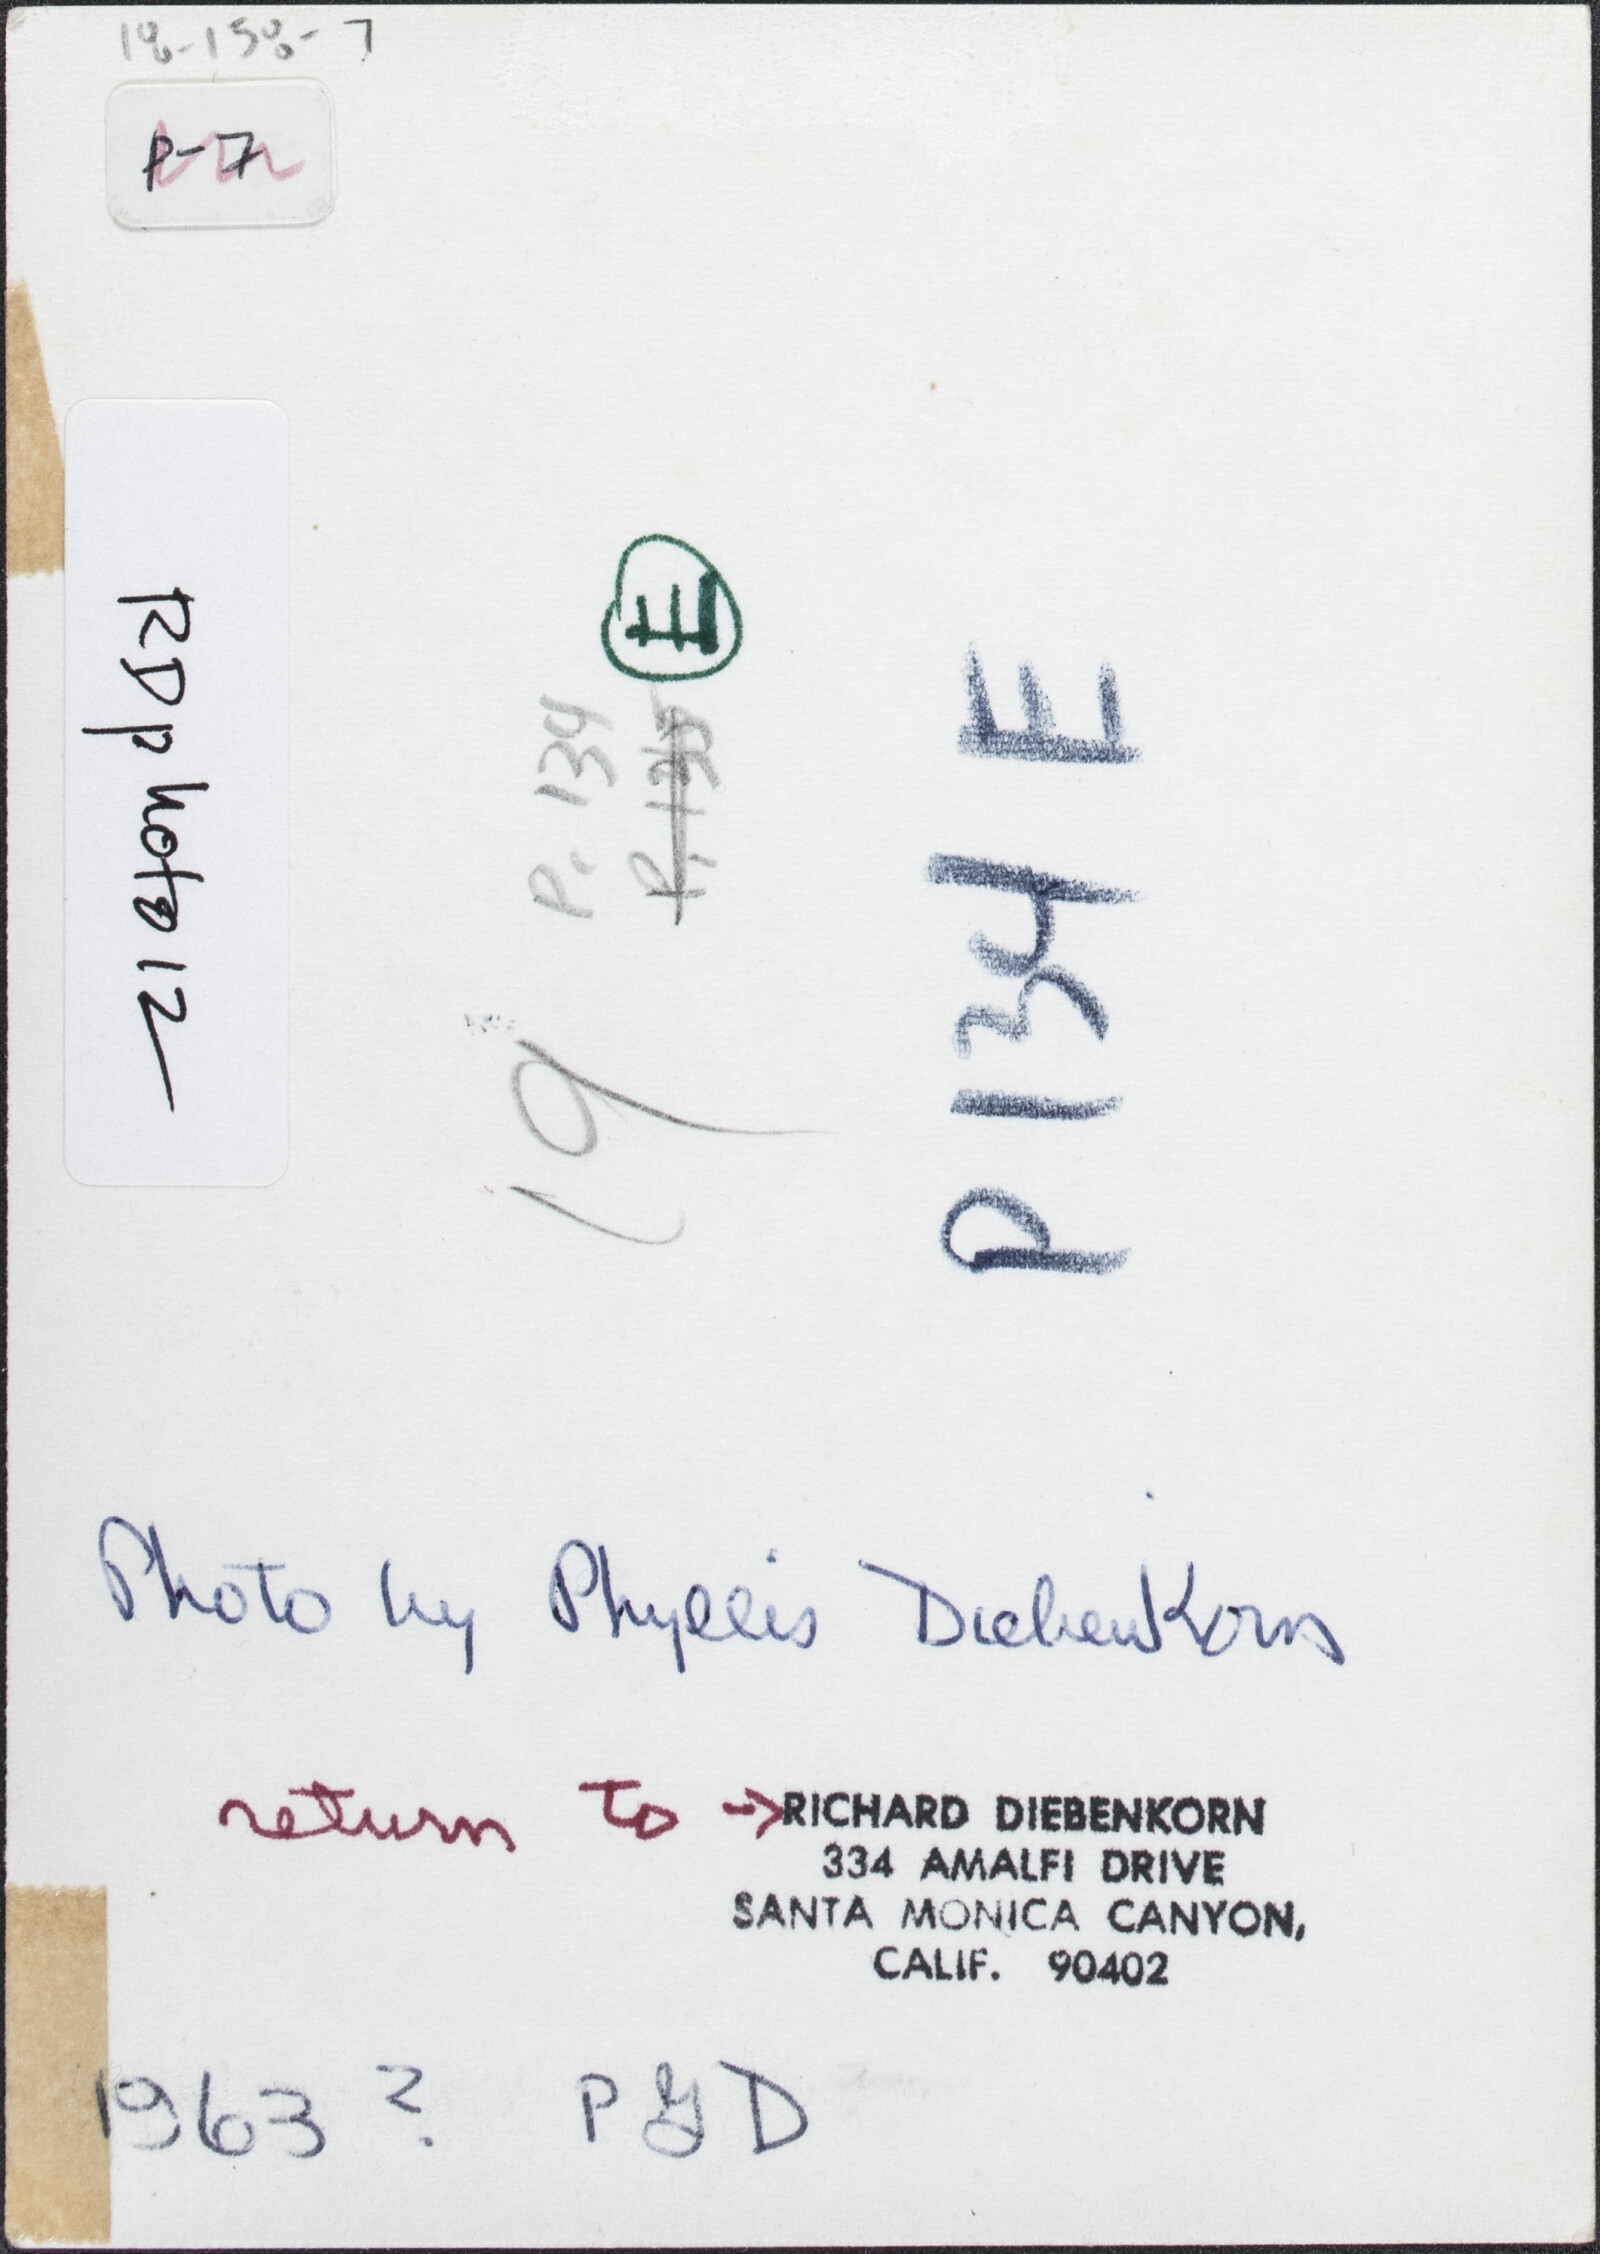 18-158-7
P-7
RDphoto12
E
P. 134
P. 135
19
P134 E
Photo by Phyllis Diebenkorn
return to → RICHARD DIEBENKORN
334 AMALFI DRIVE
SANTA MONICA CANYON,
CALIF. 90402
1963 ? PGD